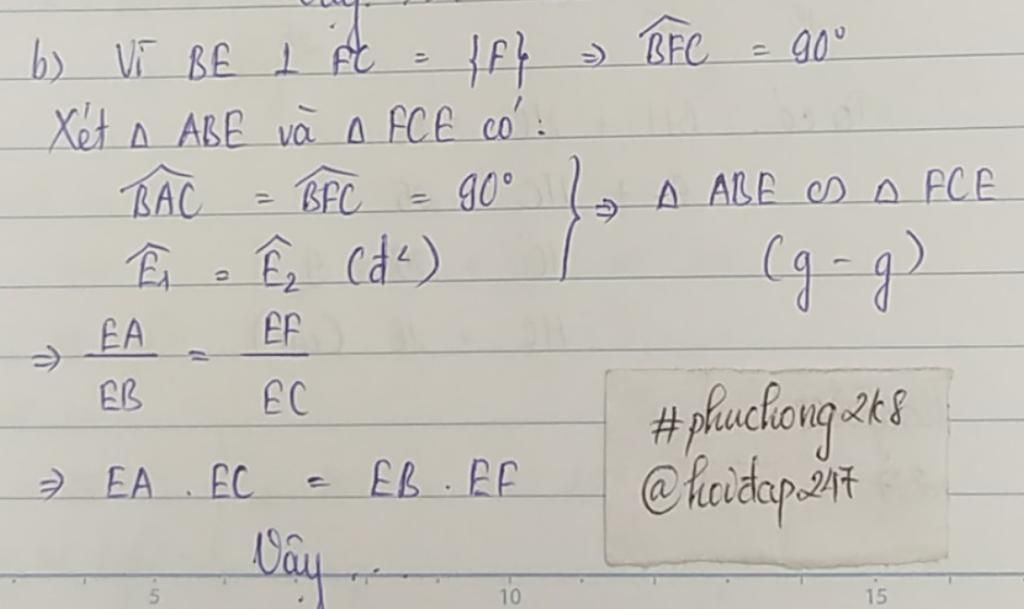 b) Vì BE ⊥ FC = {F} ⇒ \widehat{BFC} = 90°
Xét Δ ABE và Δ FCE có:
\widehat{BAC} = \widehat{BFC} = 90° } ⇒ Δ ABE ∽ Δ FCE
\widehat{E}₁ = \widehat{E}₂ (đ²) (g - g)
⇒ EA/EB = EF/EC
⇒ EA . EC = EB . EF
Vậy ...
#phuchong2k8
@hoidap247
5 10 15